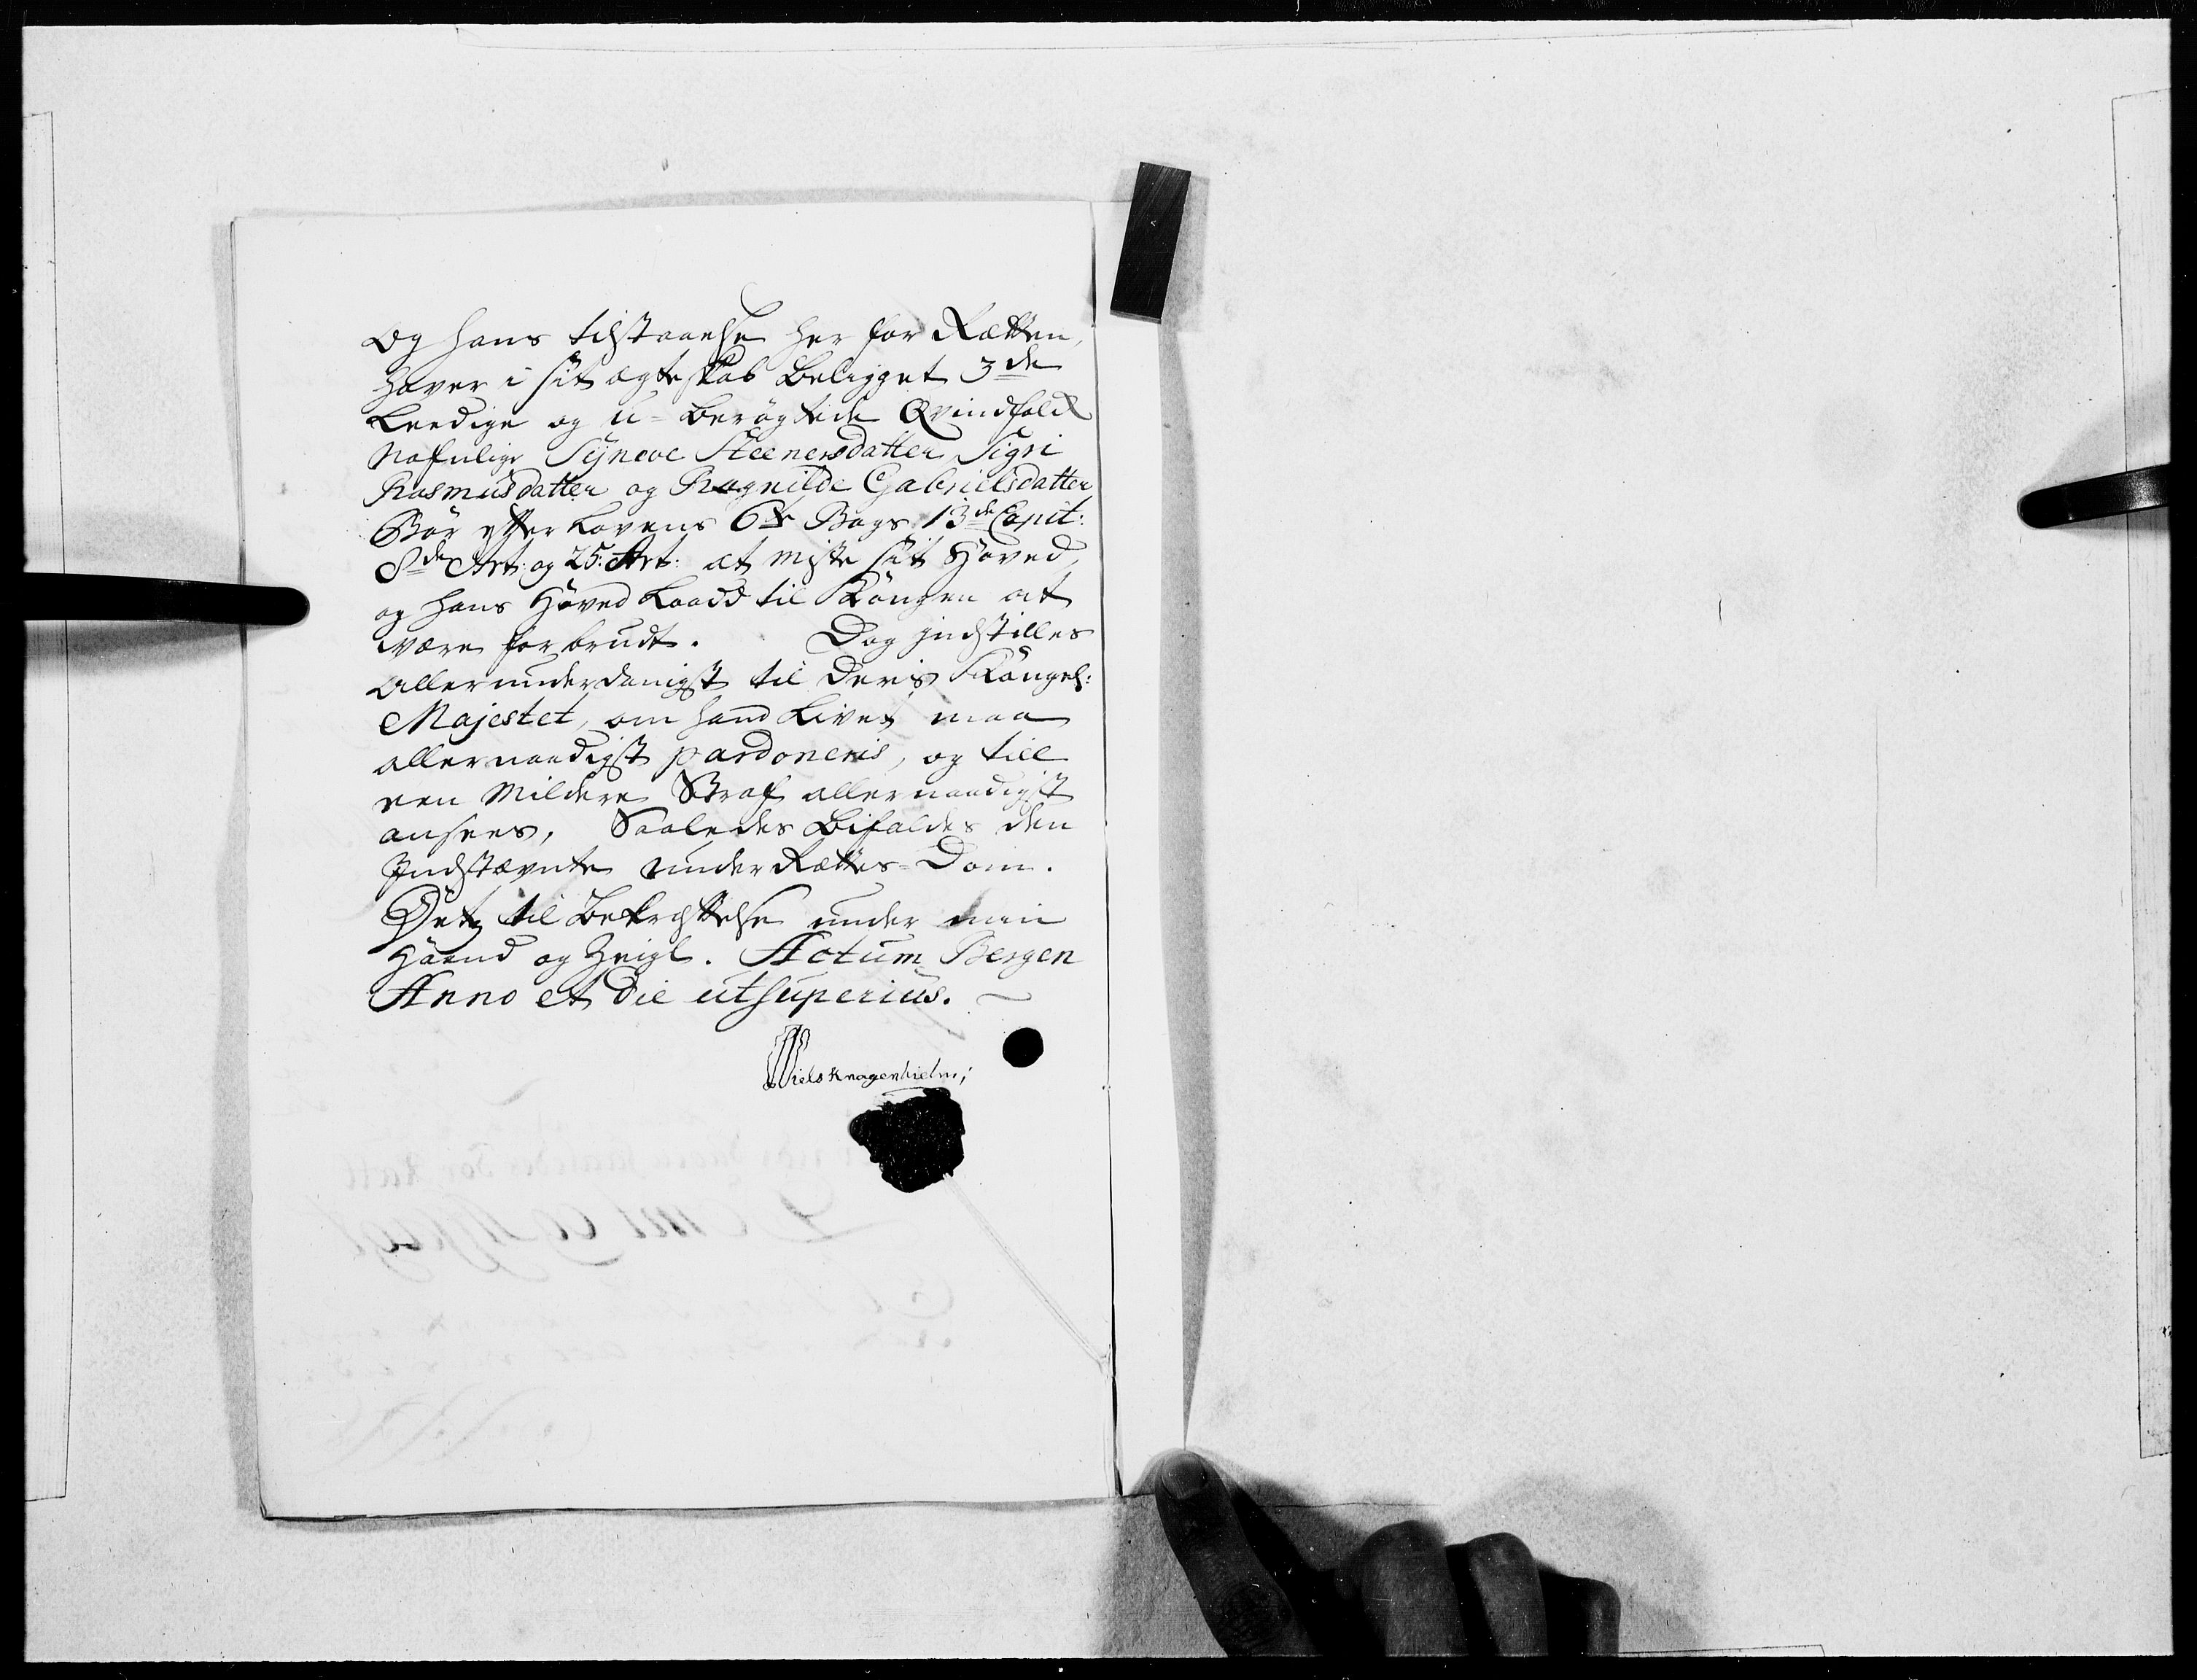 Og hans tilstaaelse her for Rætten,
haver i sit ægteskab beligget 3de
Leedige og u-berøgtede Qvindfolk
Nafnlige Syneve Steenersdatter Sigri
Rasmusdatter og Ragnilde Gabrielsdatter
Bør efter Lovens 6te Bogs 13de Capit:
8de Art: og 25: Art: at miste sit Hoved,
og hans Hoved Laadd til Kongen at
være forbrudt. Dog indstilles
Allerunderdanigst til Deris Kongel:
Majestet, om hand Livet maa
allernaadigst pardoneris, og till
een Mildere Straf allernaadigst
ansees, Saaledes bifaldes den
Indstævnte under Rættes-Dom.
Dets til Bekræftelse under min
Haand og Zeigl. Actum Bergen
Anno et Die ut superius.
Niels Knagenhielm;